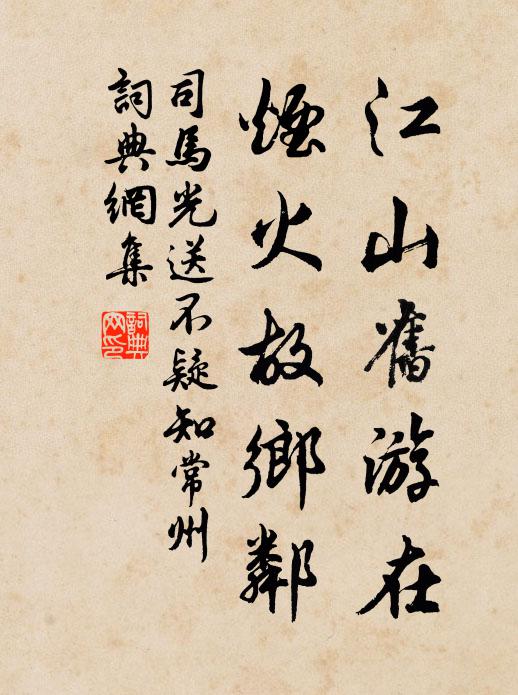 江山舊游在
煙火故鄉鄰
司馬光送不疑知常州
詞典網集
詞典
网印